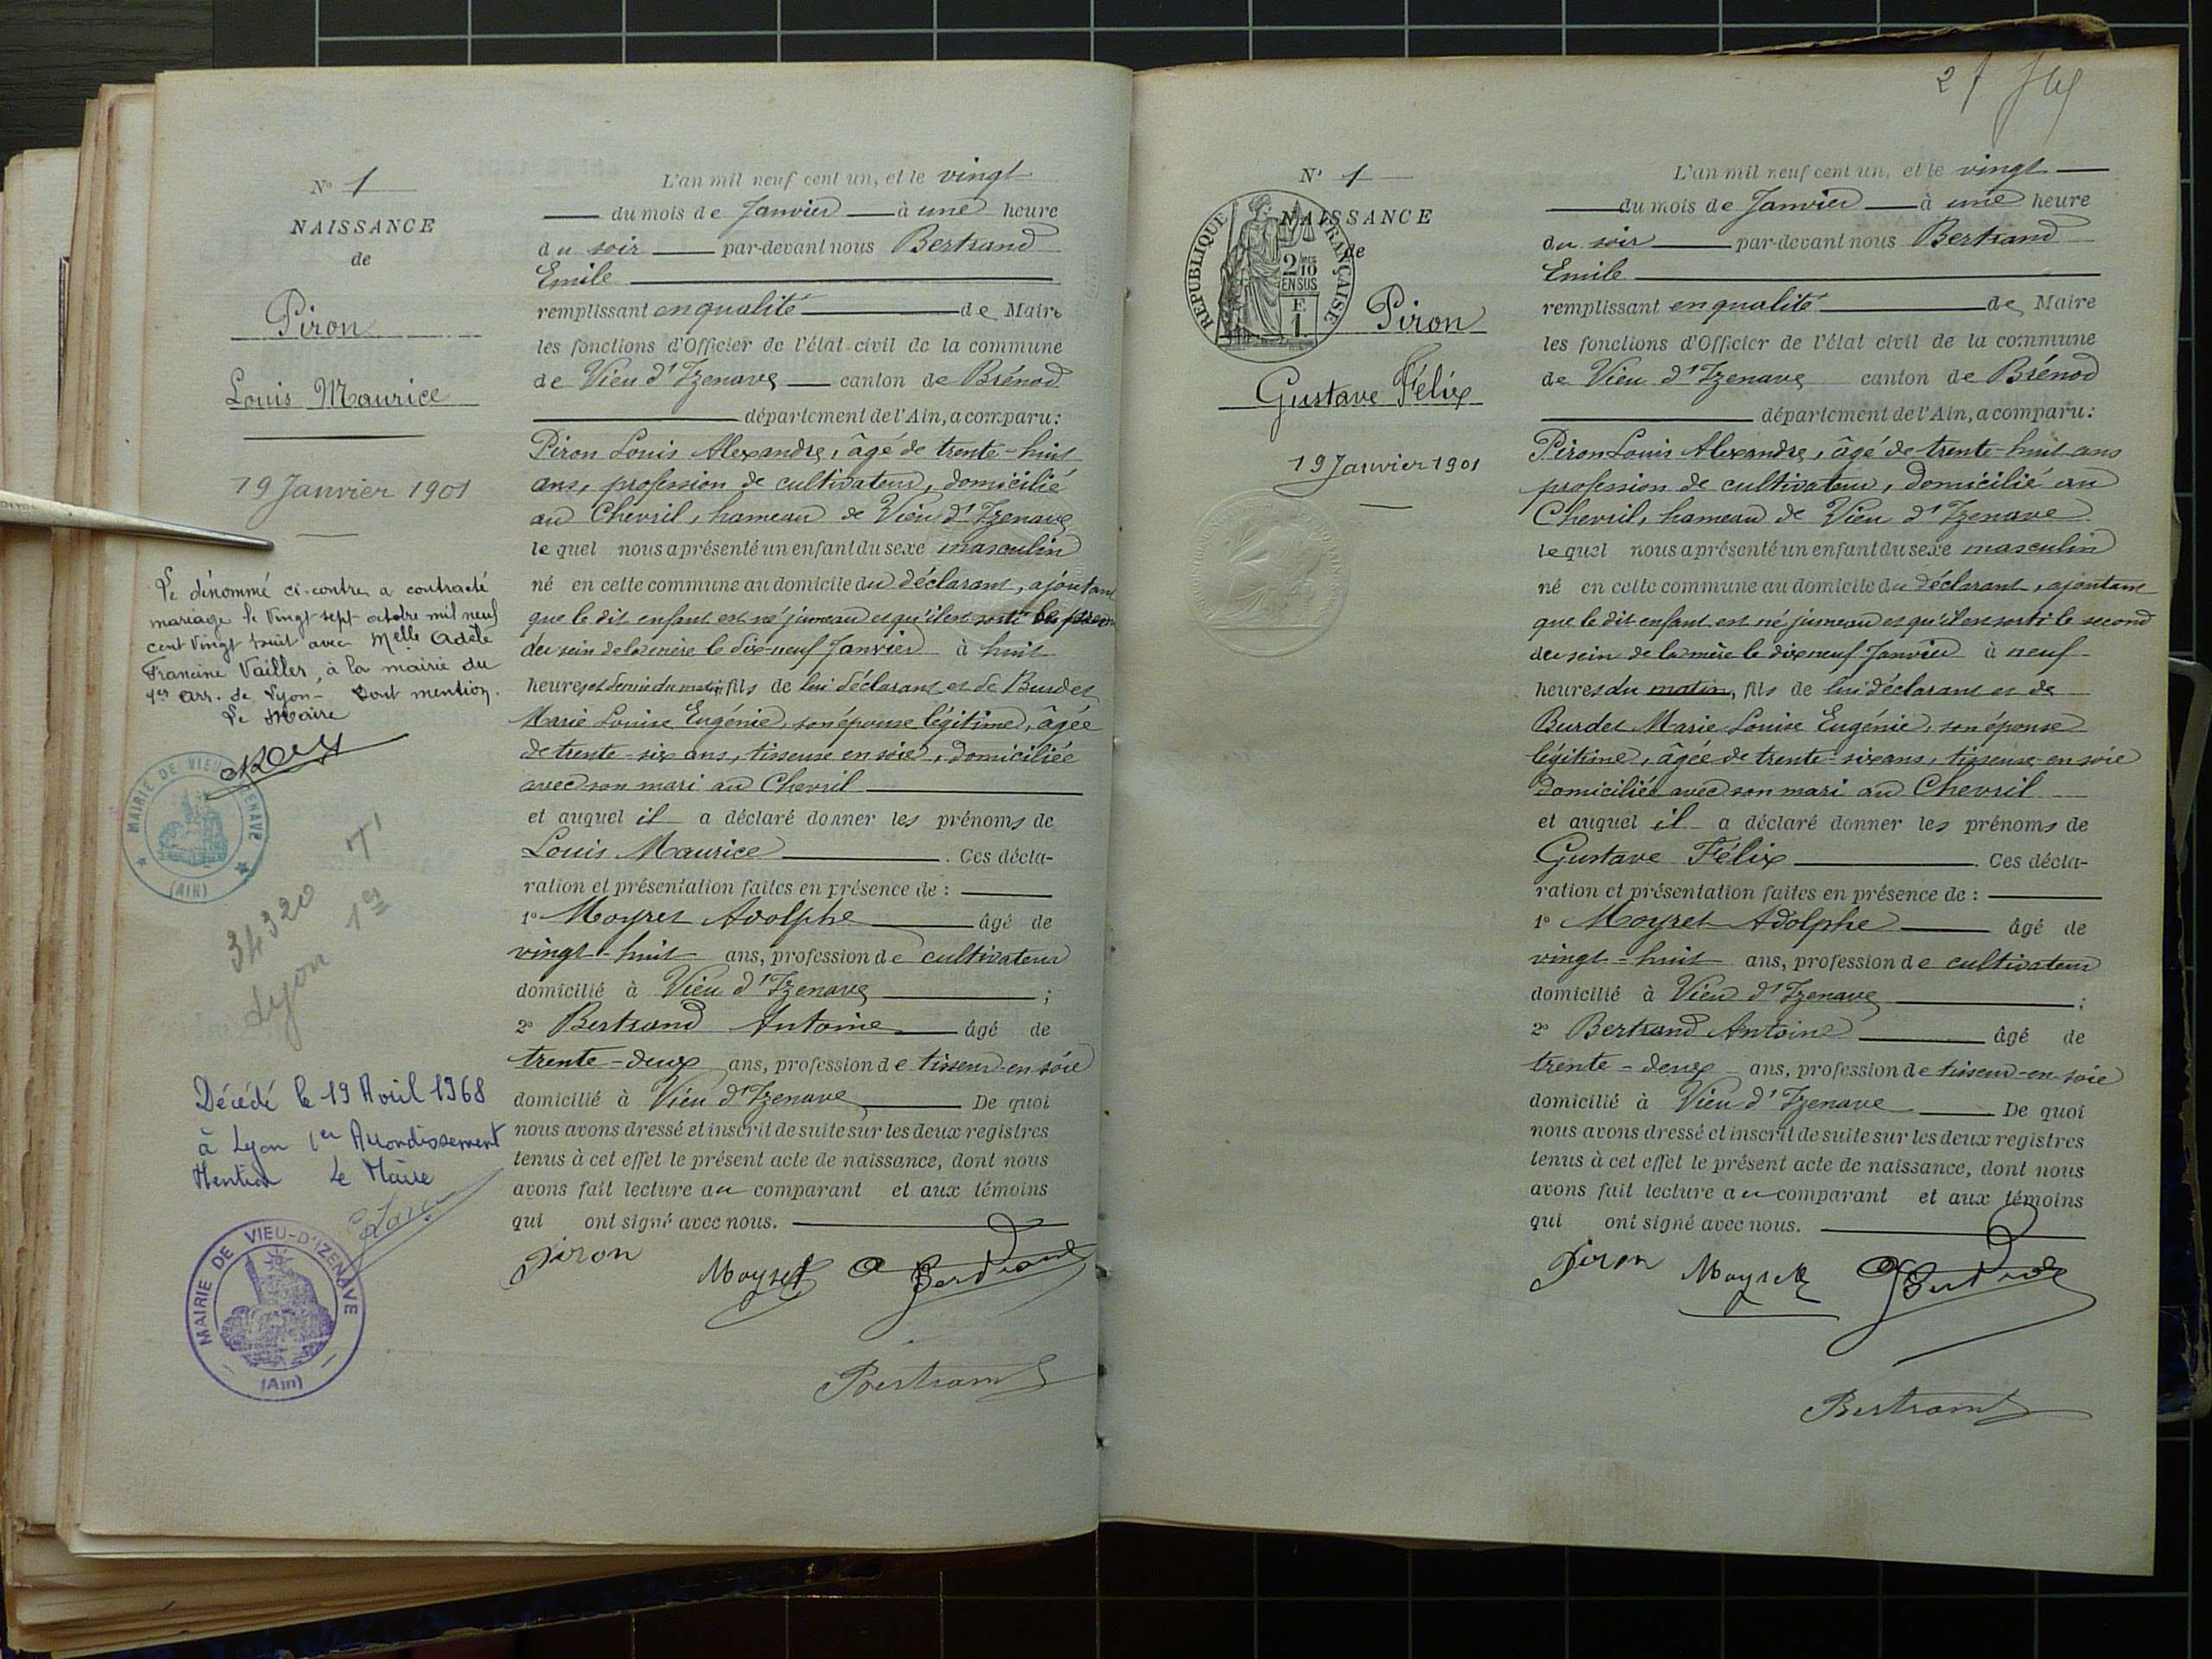 N° 1
NAISSANCE
de
Piron
Louis Maurice
19 Janvier 1901
Le dénommé ci-contre a contracté
mariage le Vingt-sept octobre mil neuf
cent vingt huit avec Melle Adèle
Francine Vailler, à la mairie du
1er arr. de Lyon - Dont mention.
Le Maire
MAIRIE DE VIEU D'IZENAVE
(AIN)
34320
Lyon 1er
Décédé le 19 Avril 1968
à Lyon 1er Arrondissement
Mention Le Maire
MAIRIE DE VIEU-D'IZENAVE
(Ain)
L'an mil neuf cent un, et le vingt
du mois de Janvier à une heure
du soir par-devant nous Bertrand
Emile
remplissant en qualité de Maire
les fonctions d'Officier de l'état civil de la commune
de Vieu d'Izenave canton de Brénod
département de l'Ain, a comparu:
Piron Louis Alexandre, âgé de trente-huit
ans, profession de cultivateur, domicilié
au Chevril, hameau de Vieu d'Izenave
lequel nous a présenté un enfant du sexe masculin
né en cette commune au domicile du déclarant, ajoutant
que le dit enfant est né jumeau et qu'il est sorti le premier
du sein de la mère le dix-neuf Janvier à huit
heures et demie du matin, fils de lui déclarant et de Burdet
Marie Louise Eugénie, son épouse légitime, âgée
de trente-six ans, tisseuse en soie, domiciliée
avec son mari au Chevril
et auquel il a déclaré donner les prénoms de
Louis Maurice. Ces décla-
ration et présentation faites en présence de :
1° Moyret Adolphe âgé de
vingt-huit ans, profession de cultivateur
domicilié à Vieu d'Izenave ;
2° Bertrand Antoine âgé de
trente-deux ans, profession de tisseur-en-soie
domicilié à Vieu d'Izenave De quoi
nous avons dressé et inscrit de suite sur les deux registres
tenus à cet effet le présent acte de naissance, dont nous
avons fait lecture au comparant et aux témoins
qui ont signé avec nous.
Piron Moyret A Bertrand
Bertrand
N° 1
NAISSANCE
de
REPUBLIQUE FRANÇAISE
2/10
EN SUS
F.
1
Piron
Gustave Félix
19 Janvier 1901
L'an mil neuf cent un, et le vingt
du mois de Janvier à une heure
du soir par-devant nous Bertrand
Emile
remplissant en qualité de Maire
les fonctions d'Officier de l'état civil de la commune
de Vieu d'Izenave canton de Brénod
département de l'Ain, a comparu:
Piron Louis Alexandre, âgé de trente-huit ans
profession de cultivateur, domicilié au
Chevril, hameau de Vieu d'Izenave
lequel nous a présenté un enfant du sexe masculin
né en cette commune au domicile du déclarant, ajoutant
que le dit enfant est né jumeau et qu'il est sorti le second
du sein de la mère le dix neuf Janvier à neuf
heures du matin, fils de lui déclarant et de
Burdet Marie Louise Eugénie, son épouse
légitime, âgée de trente-six ans, tisseuse-en-soie
domiciliée avec son mari au Chevril
et auquel il a déclaré donner les prénoms de
Gustave Félix. Ces décla-
ration et présentation faites en présence de :
1° Moyret Adolphe âgé de
vingt-huit ans, profession de cultivateur
domicilié à Vieu d'Izenave ;
2° Bertrand Antoine âgé de
trente-deux ans, profession de tisseur-en-soie
domicilié à Vieu d'Izenave De quoi
nous avons dressé et inscrit de suite sur les deux registres
tenus à cet effet le présent acte de naissance, dont nous
avons fait lecture au comparant et aux témoins
qui ont signé avec nous.
Piron Moyret A Bertrand
Bertrand